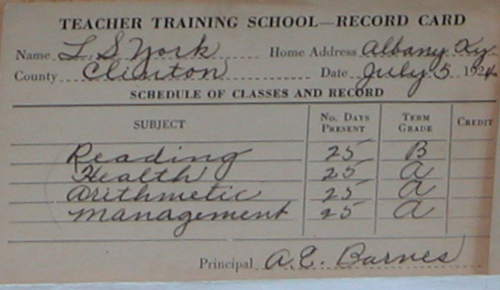 TEACHER TRAINING SCHOOL—RECORD CARD
Name L S York Home Address Albany, Ky.
County Clinton Date July 5 1924
SCHEDULE OF CLASSES AND RECORD
SUBJECT No. DAYS PRESENT TERM GRADE CREDIT
Reading 25 B
Health 25 A
Arithmetic 25 A
Management 25 A
Principal A. E. Barnes